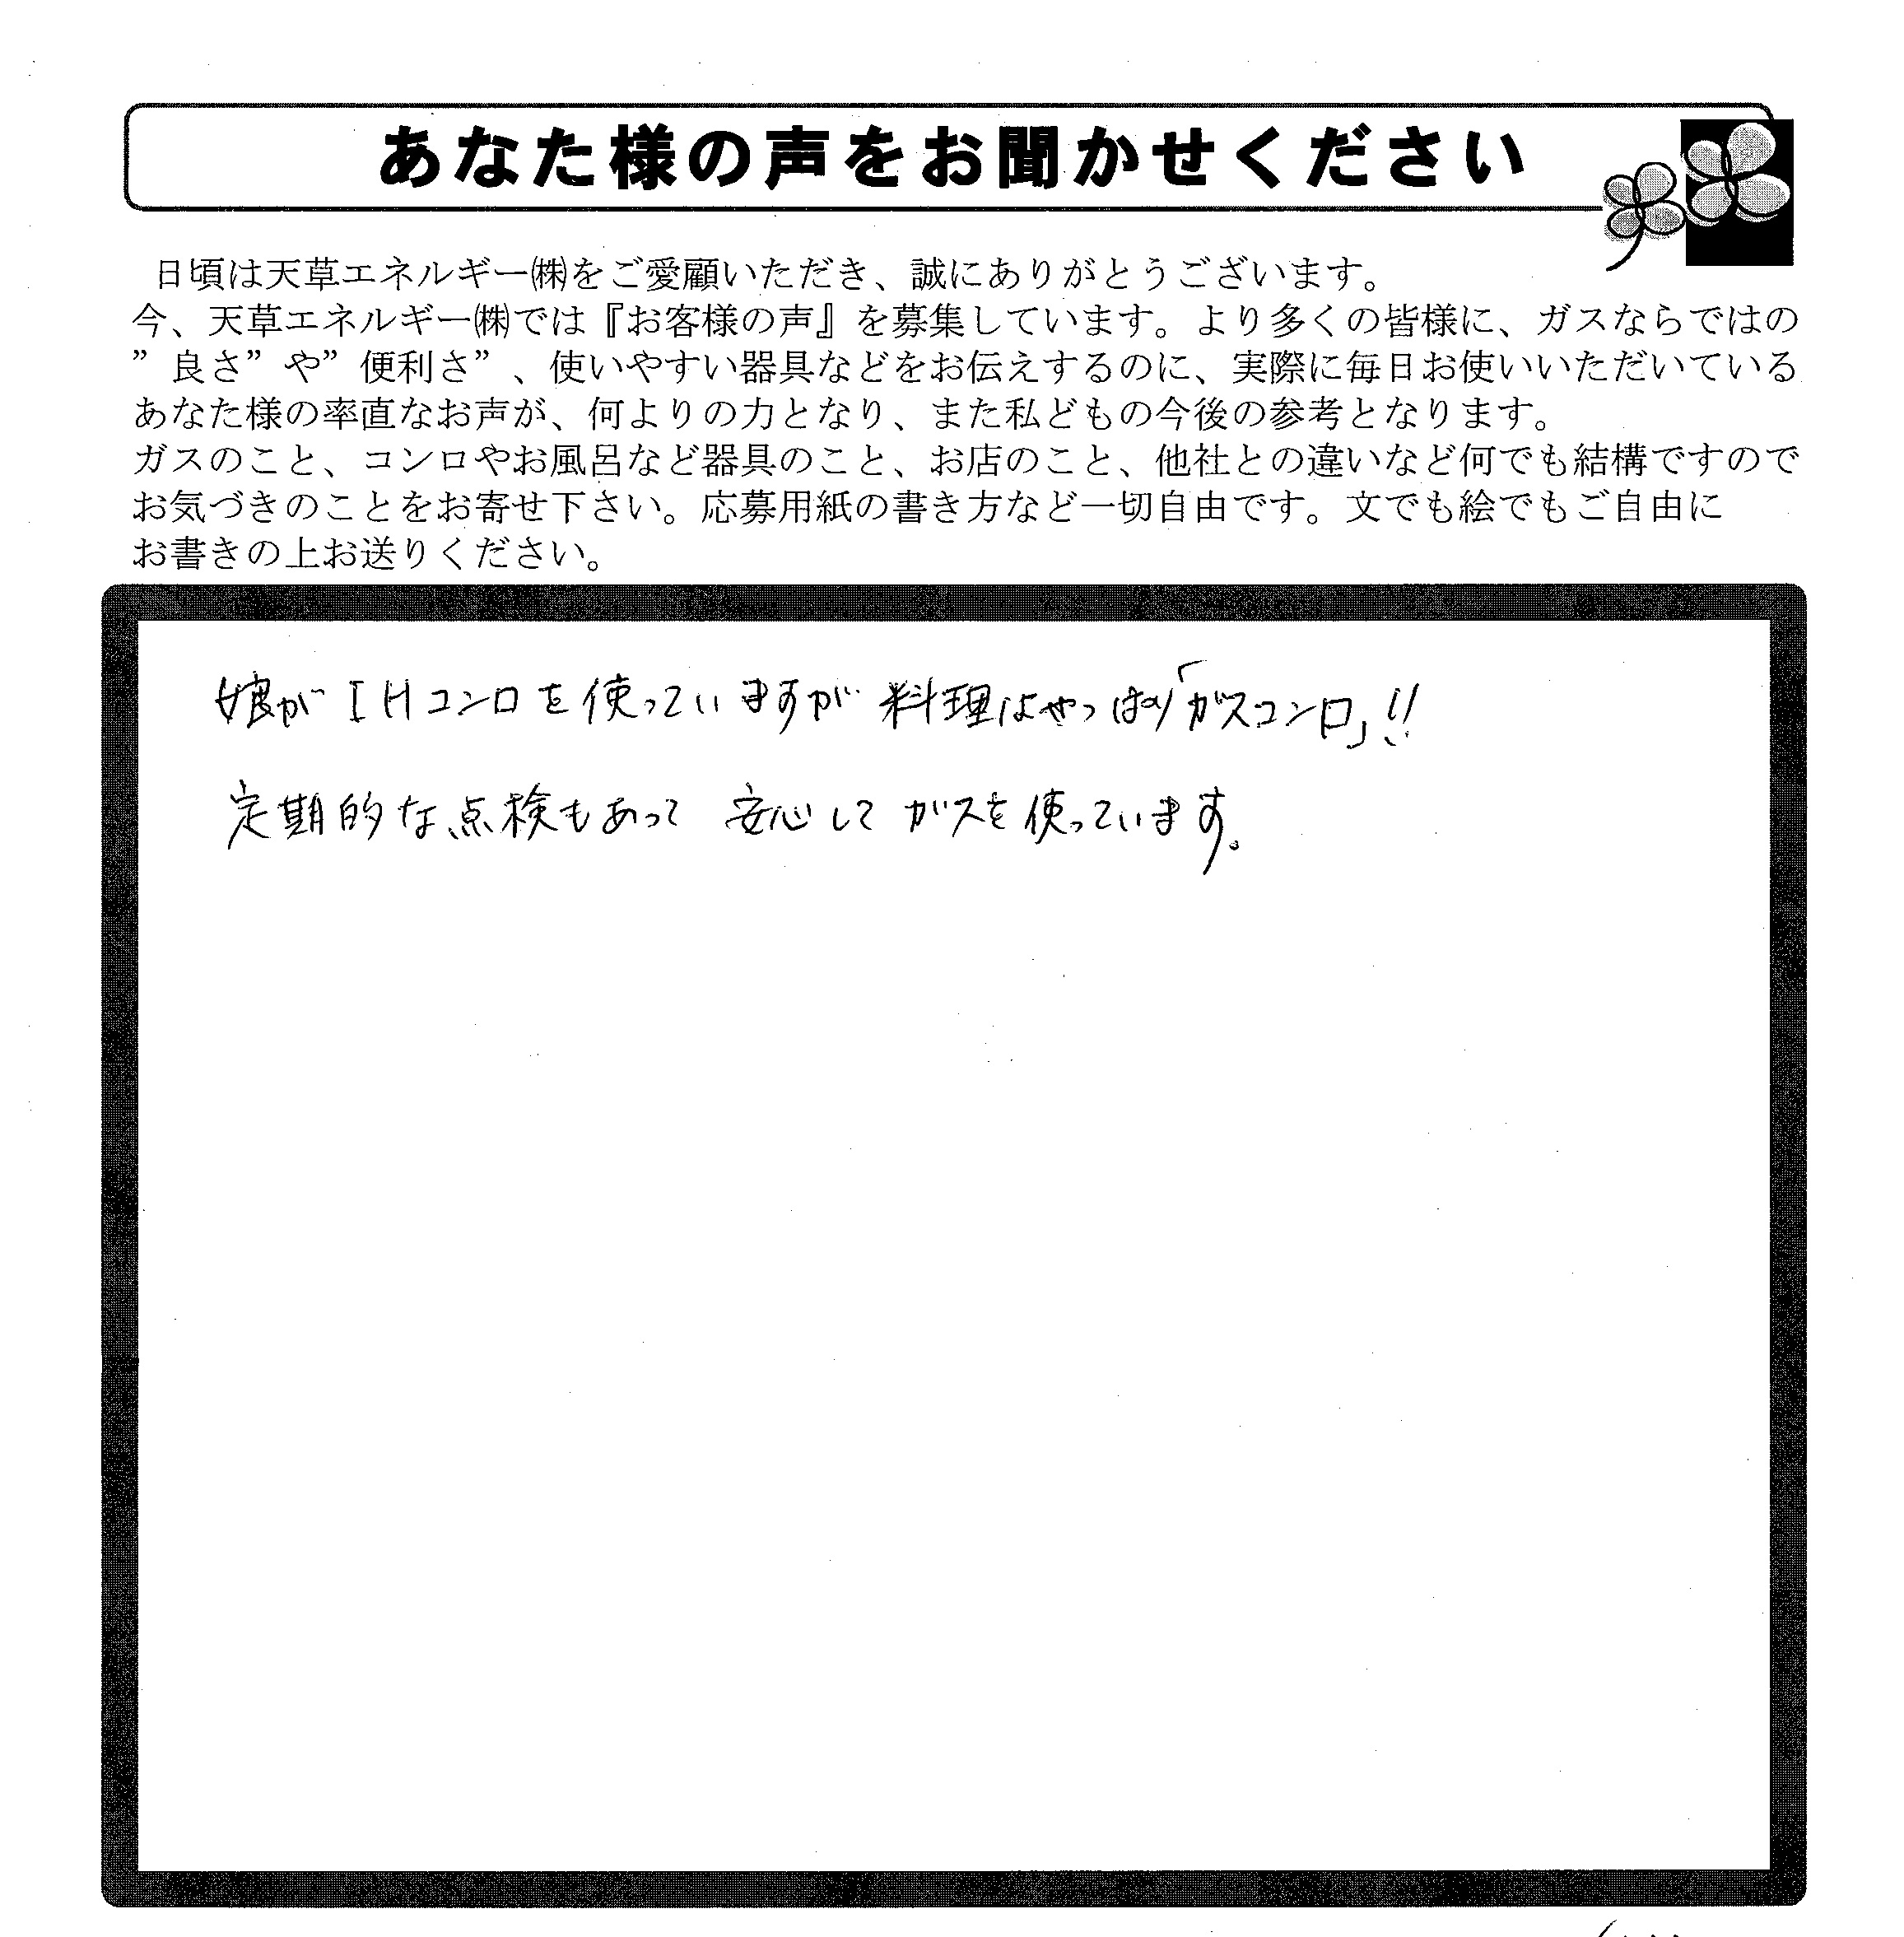 あなた様の声をお聞かせください
日頃は天草エネルギー㈱をご愛顧いただき、誠にありがとうございます。
今、天草エネルギー㈱では『お客様の声』を募集しています。より多くの皆様に、ガスならではの
”良さ”や”便利さ”、使いやすい器具などをお伝えするのに、実際に毎日お使いいただいている
あなた様の率直なお声が、何よりの力となり、また私どもの今後の参考となります。
ガスのこと、コンロやお風呂など器具のこと、お店のこと、他社との違いなど何でも結構ですので
お気づきのことをお寄せ下さい。応募用紙の書き方など一切自由です。文でも絵でもご自由に
お書きの上お送りください。
娘がIHコンロを使っていますが 料理はやっぱり「ガスコンロ」!!
定期的な点検もあって 安心して ガスを使っています。